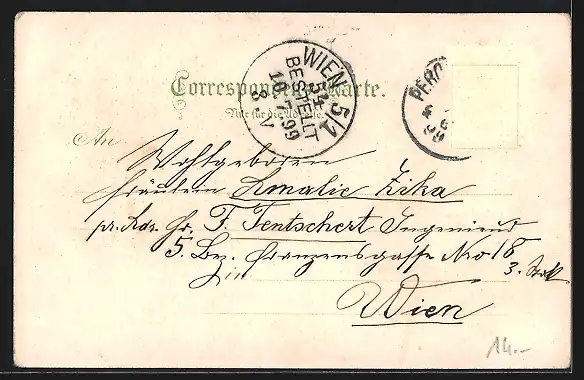 Correspondenz-Karte.
Nur für die Adresse.
WIEN 5/1
54
BESTELLT
16.7.99
8.V
PERC
99
An
Wohlgeboren
Fräulein Amalie Zika
pr. Adr. Hr. F. Tentschert Ingenieur
5. Bez. Franzensgasse Nro 18
3. Stok
in
Wien
14.-